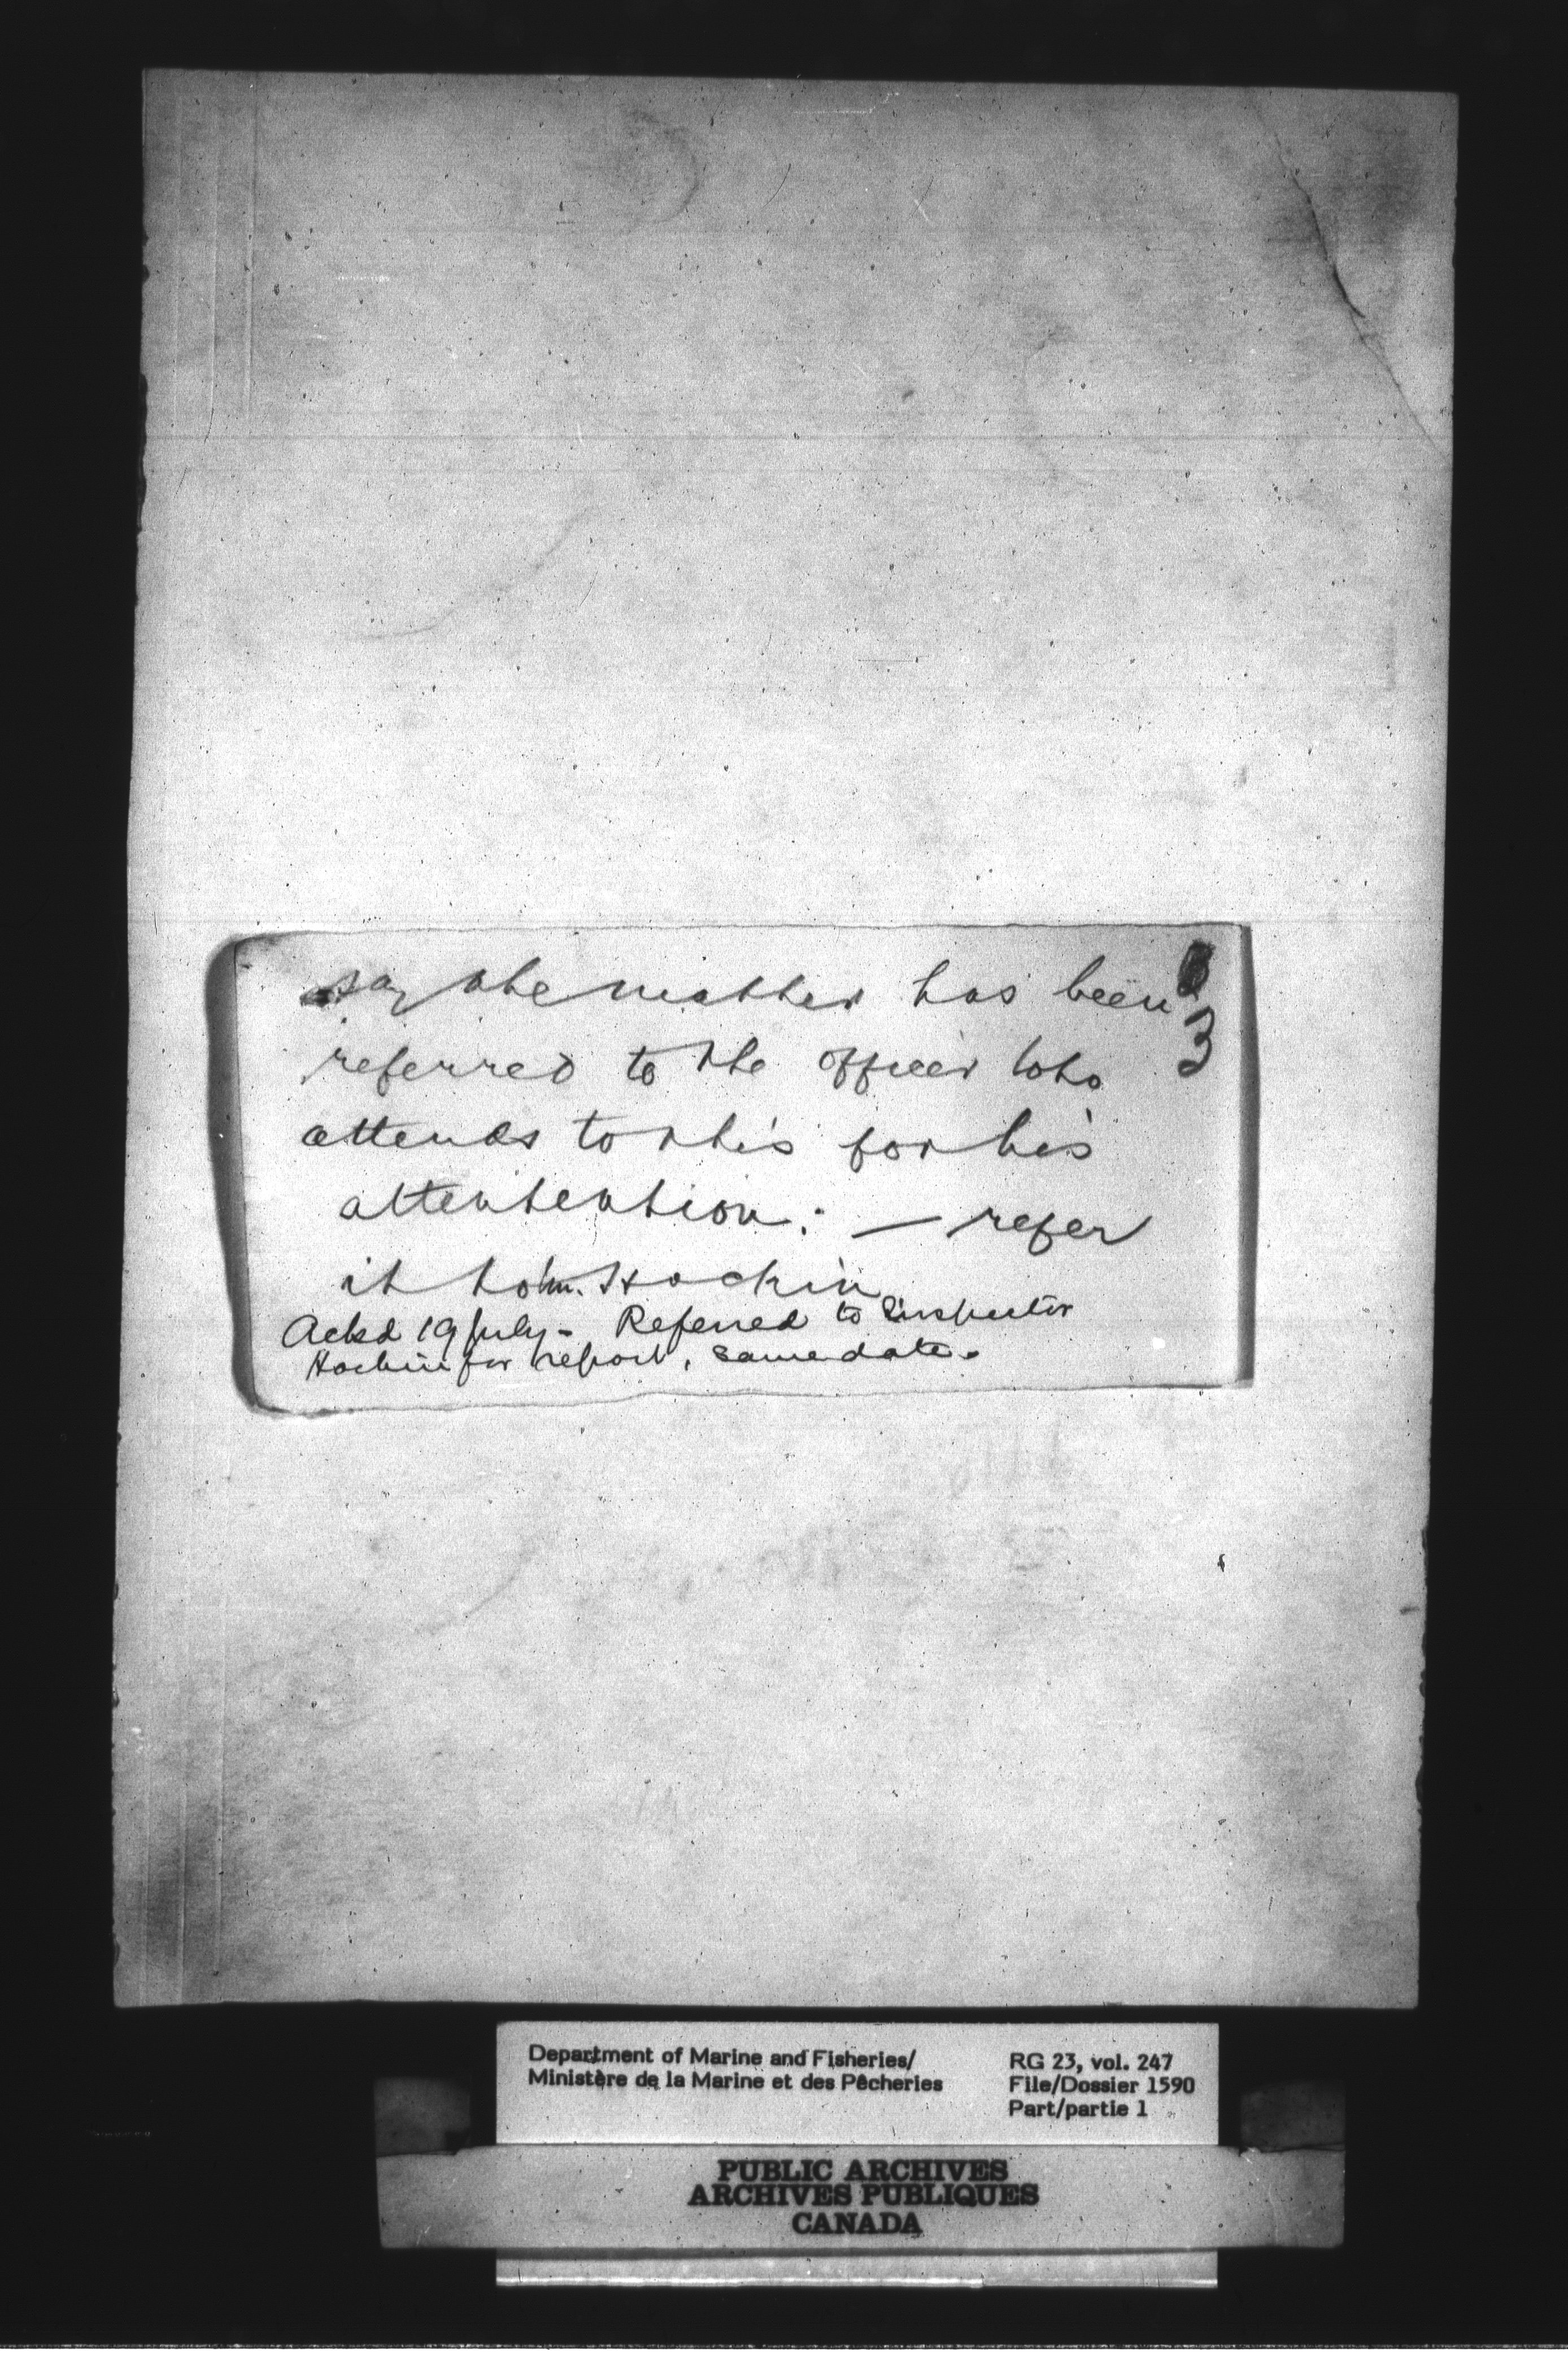 say the matter has been
3
referred to the officer who
attends to this for his
attentention: — refer
it to Mr. Hockin
Ackd 19 July - Referred to Inspector
Hockin for report, same date.
Department of Marine and Fisheries/
Ministère de la Marine et des Pêcheries
RG 23, vol. 247
File/Dossier 1590
Part/partie 1
PUBLIC ARCHIVES
ARCHIVES PUBLIQUES
CANADA